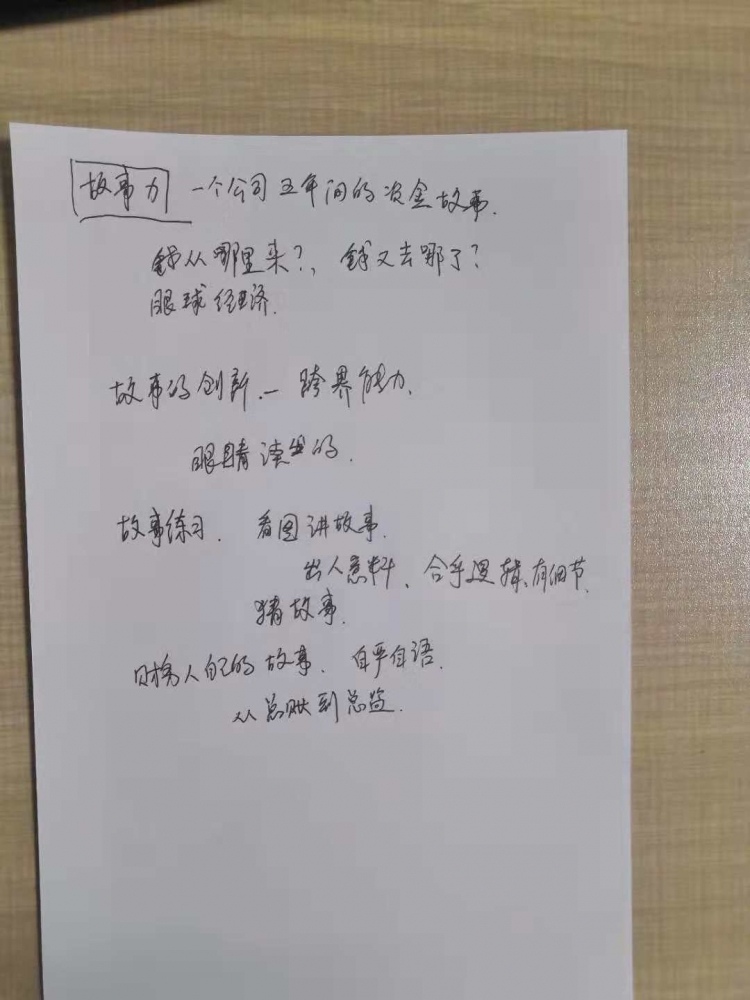 故事力 一个公司五年间的资金故事.
钱从哪里来?, 钱又去哪了?
眼球经济.
故事的创新 — 跨界能力.
眼睛读出的.
故事练习. 看图讲故事.
出人意料、合乎逻辑、有细节.
猜故事.
财务人自己的故事. 自乎自语.
从总账到总监.